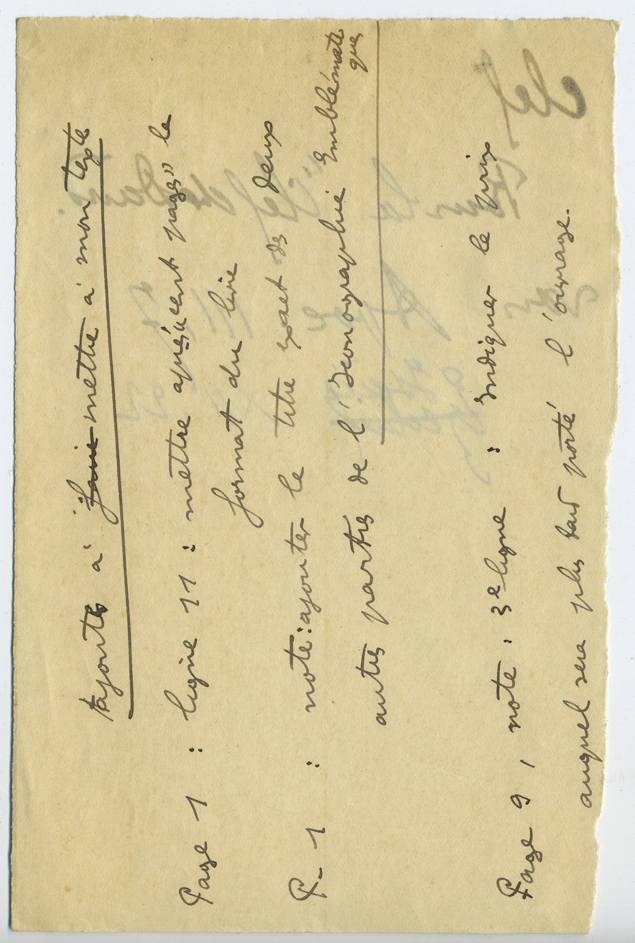 Ajouts à faire mettre à mon texte
Page 1 : ligne 11 : mettre après "cent pages" le
format du livre
P. 1 : note : ajouter le titre exact des deux
autres parties de l'Iconographie Emblématique
Page 9, note, 3e ligne : Indiquer le prix
auquel sera plus tard porté l'ouvrage.
clef